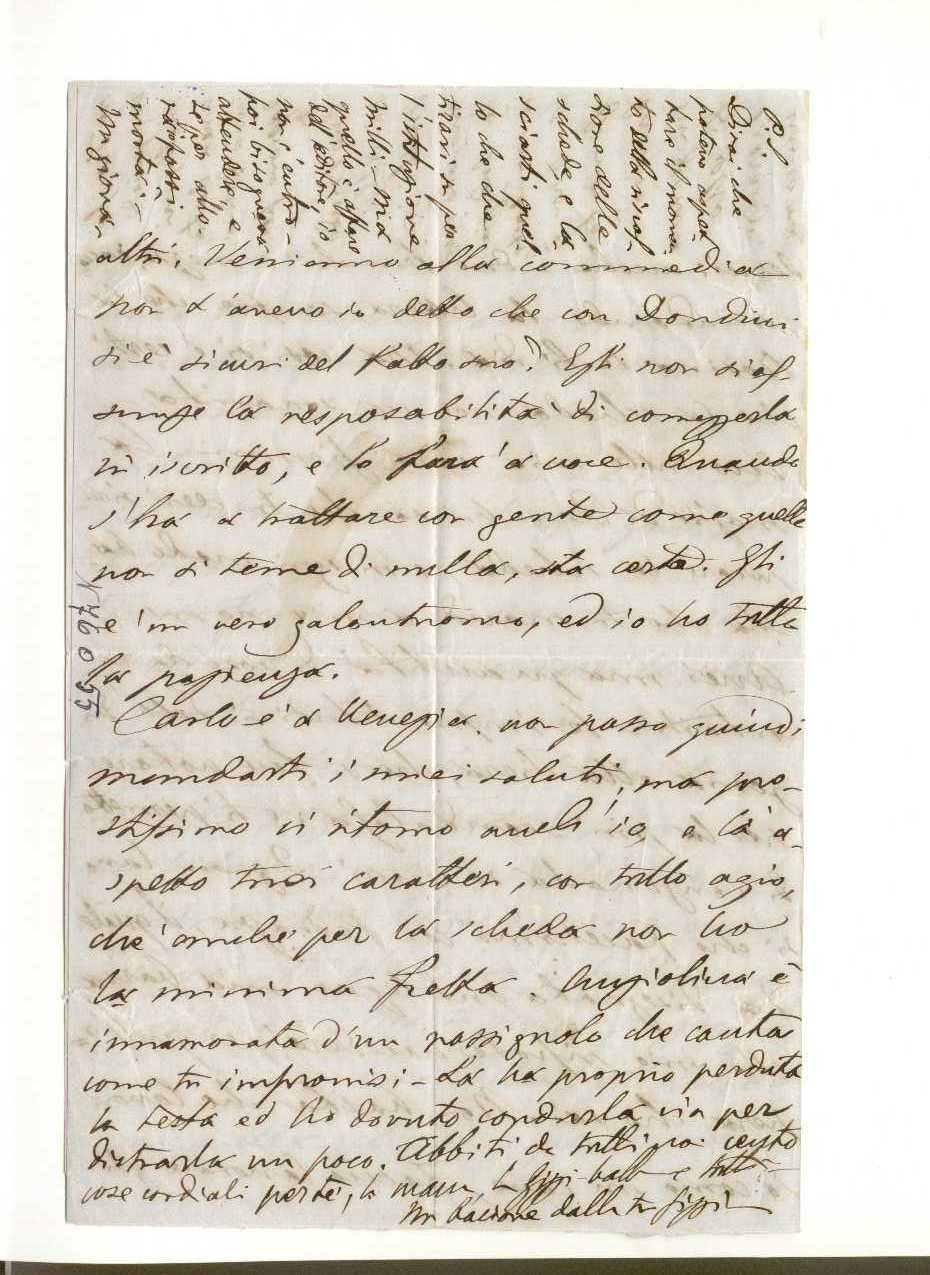 P.S.
Dirai che
potevo aspet-
tare il momen
to della
zione delle
schede, e la-
sciarti quel-
lo che che
tirarsi su per
l'istruzione
mille - Ma
quello è affare
del'editore, io
non c'entro -
poi bisognava
attendere, e
altri. Veniamo alla commedia
non t'avevo io detto che con Dondini
si è sicuri del fatto suo? Egli non si as-
sunse la resposabilità di correggerla
in iscritto, e lo farà a voce. Quando
s'ha a trattare con gente come quella
non si teme di nulla, sta certa. Egli
è un vero galantuomo, ed io ho tutta
la pazienza.
Carlo è a Venezia. non posso quindi
mandarti i miei saluti, ma pro-
stissimo vi ritorno anch'io, e là a-
spetto tuoi caratteri, con tutto agio,
chè anche per la scheda non ho
la minima fretta. Angiolina è
innamorata d'un rossignolo che canta
come tu improvisi - La ha proprio perduta
la testa ed ho dovuto condurla via per
distrarla un poco. Abbiti da tutti noi cento
cose cordiali per te, la mamma, la e tutti
Un bacione dalla tua
N 760 55